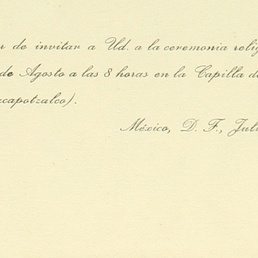 r de invitar a Ud. a la ceremonia relig
de Agosto a las 8 horas en la Capilla d
capotzalco).
México, D. F., Juli